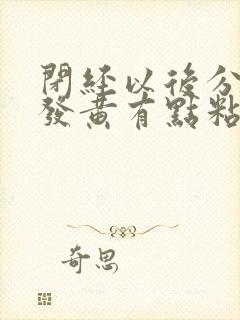 閉經以後分
發黃有點粘
奇思